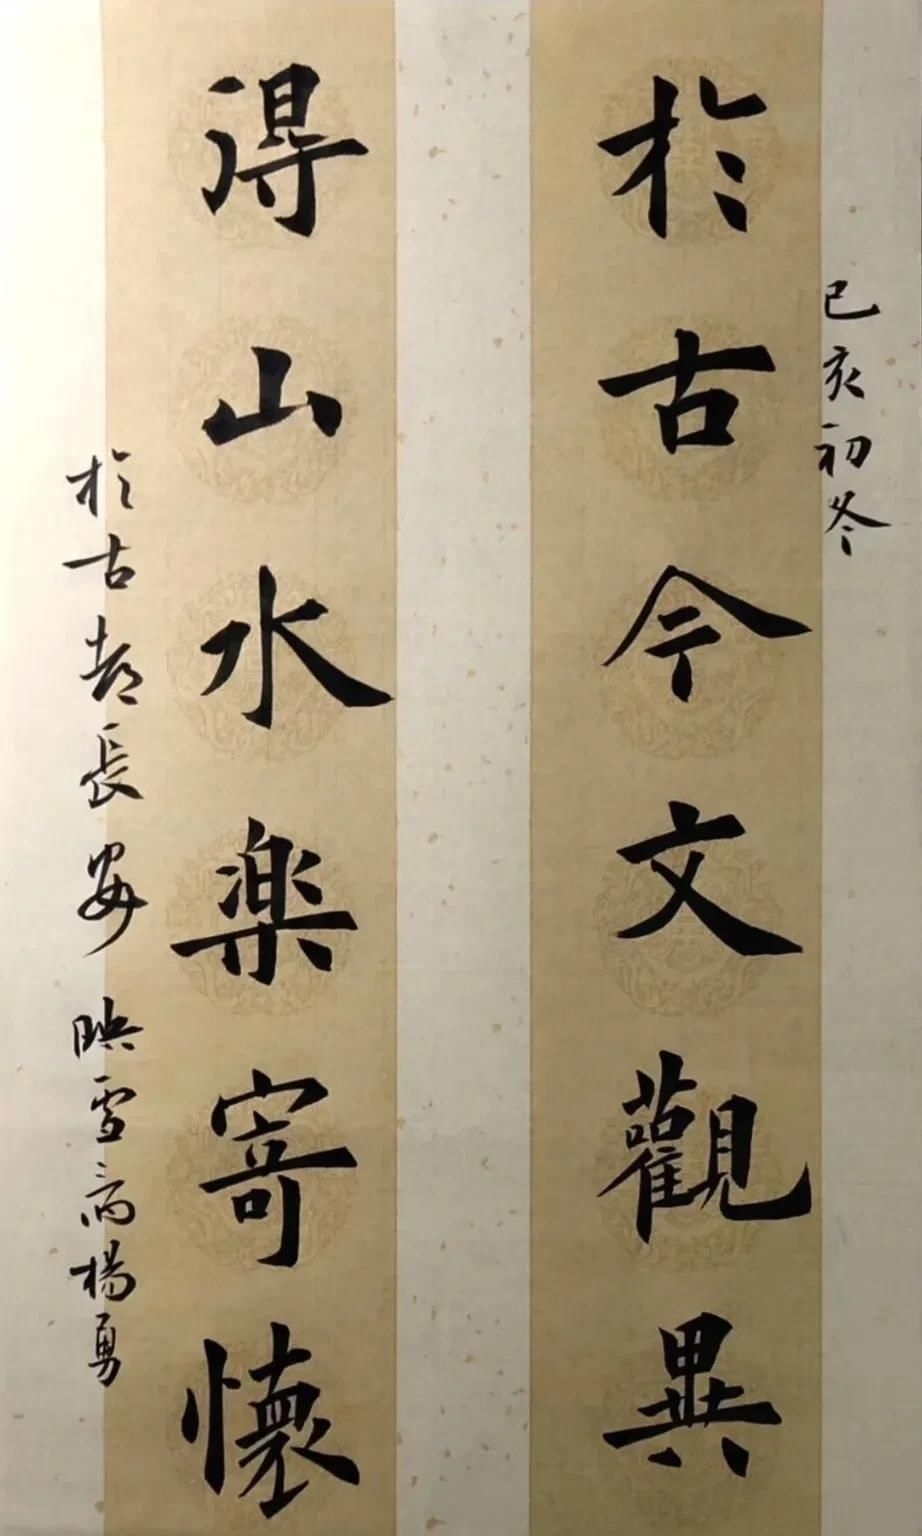 己亥初冬
於古今文觀異
得山水楽寄懷
於古都長安 映雪斋楊勇